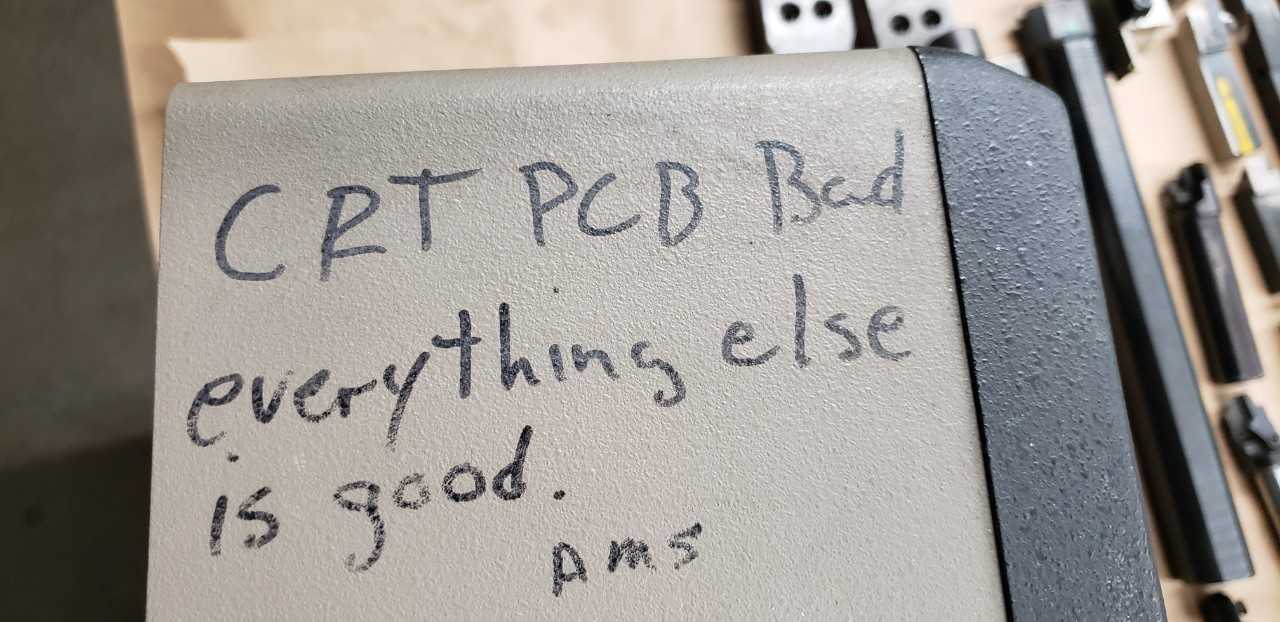 CRT PCB Bad
everything else
is good.
AMS